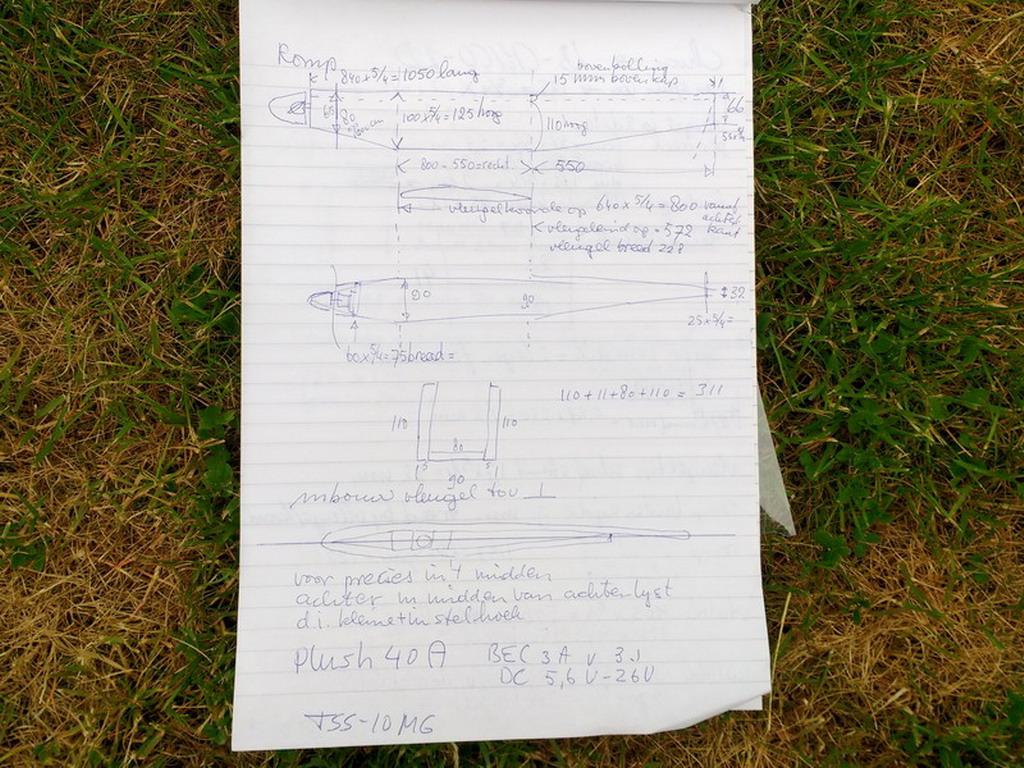 Romp
840 x 5/4 = 1050 lang
bovenbolling
15 mm bovenkap
65
80
100 x 5/4 = 125 hoog
110 hoog
66
55 x 5/4
800 - 550 = recht
550
vleugelkoorde op 640 x 5/4 = 800 vanaf
achter
kant
vleugeleind op = 572
vleugel breed 228
90
90
32
25 x 5/4 =
60 x 5/4 = 75 breed =
110 + 11 + 80 + 110 = 311
110
80
110
5
5
90
inbouw vleugel tov ⊥
voor precies in 't midden
achter in midden van achterlyst
d.i. klein instelhoek
Plush 40 A
BEC 3A v 3.1
DC 5,6 V - 26 V
TSS-10 MG